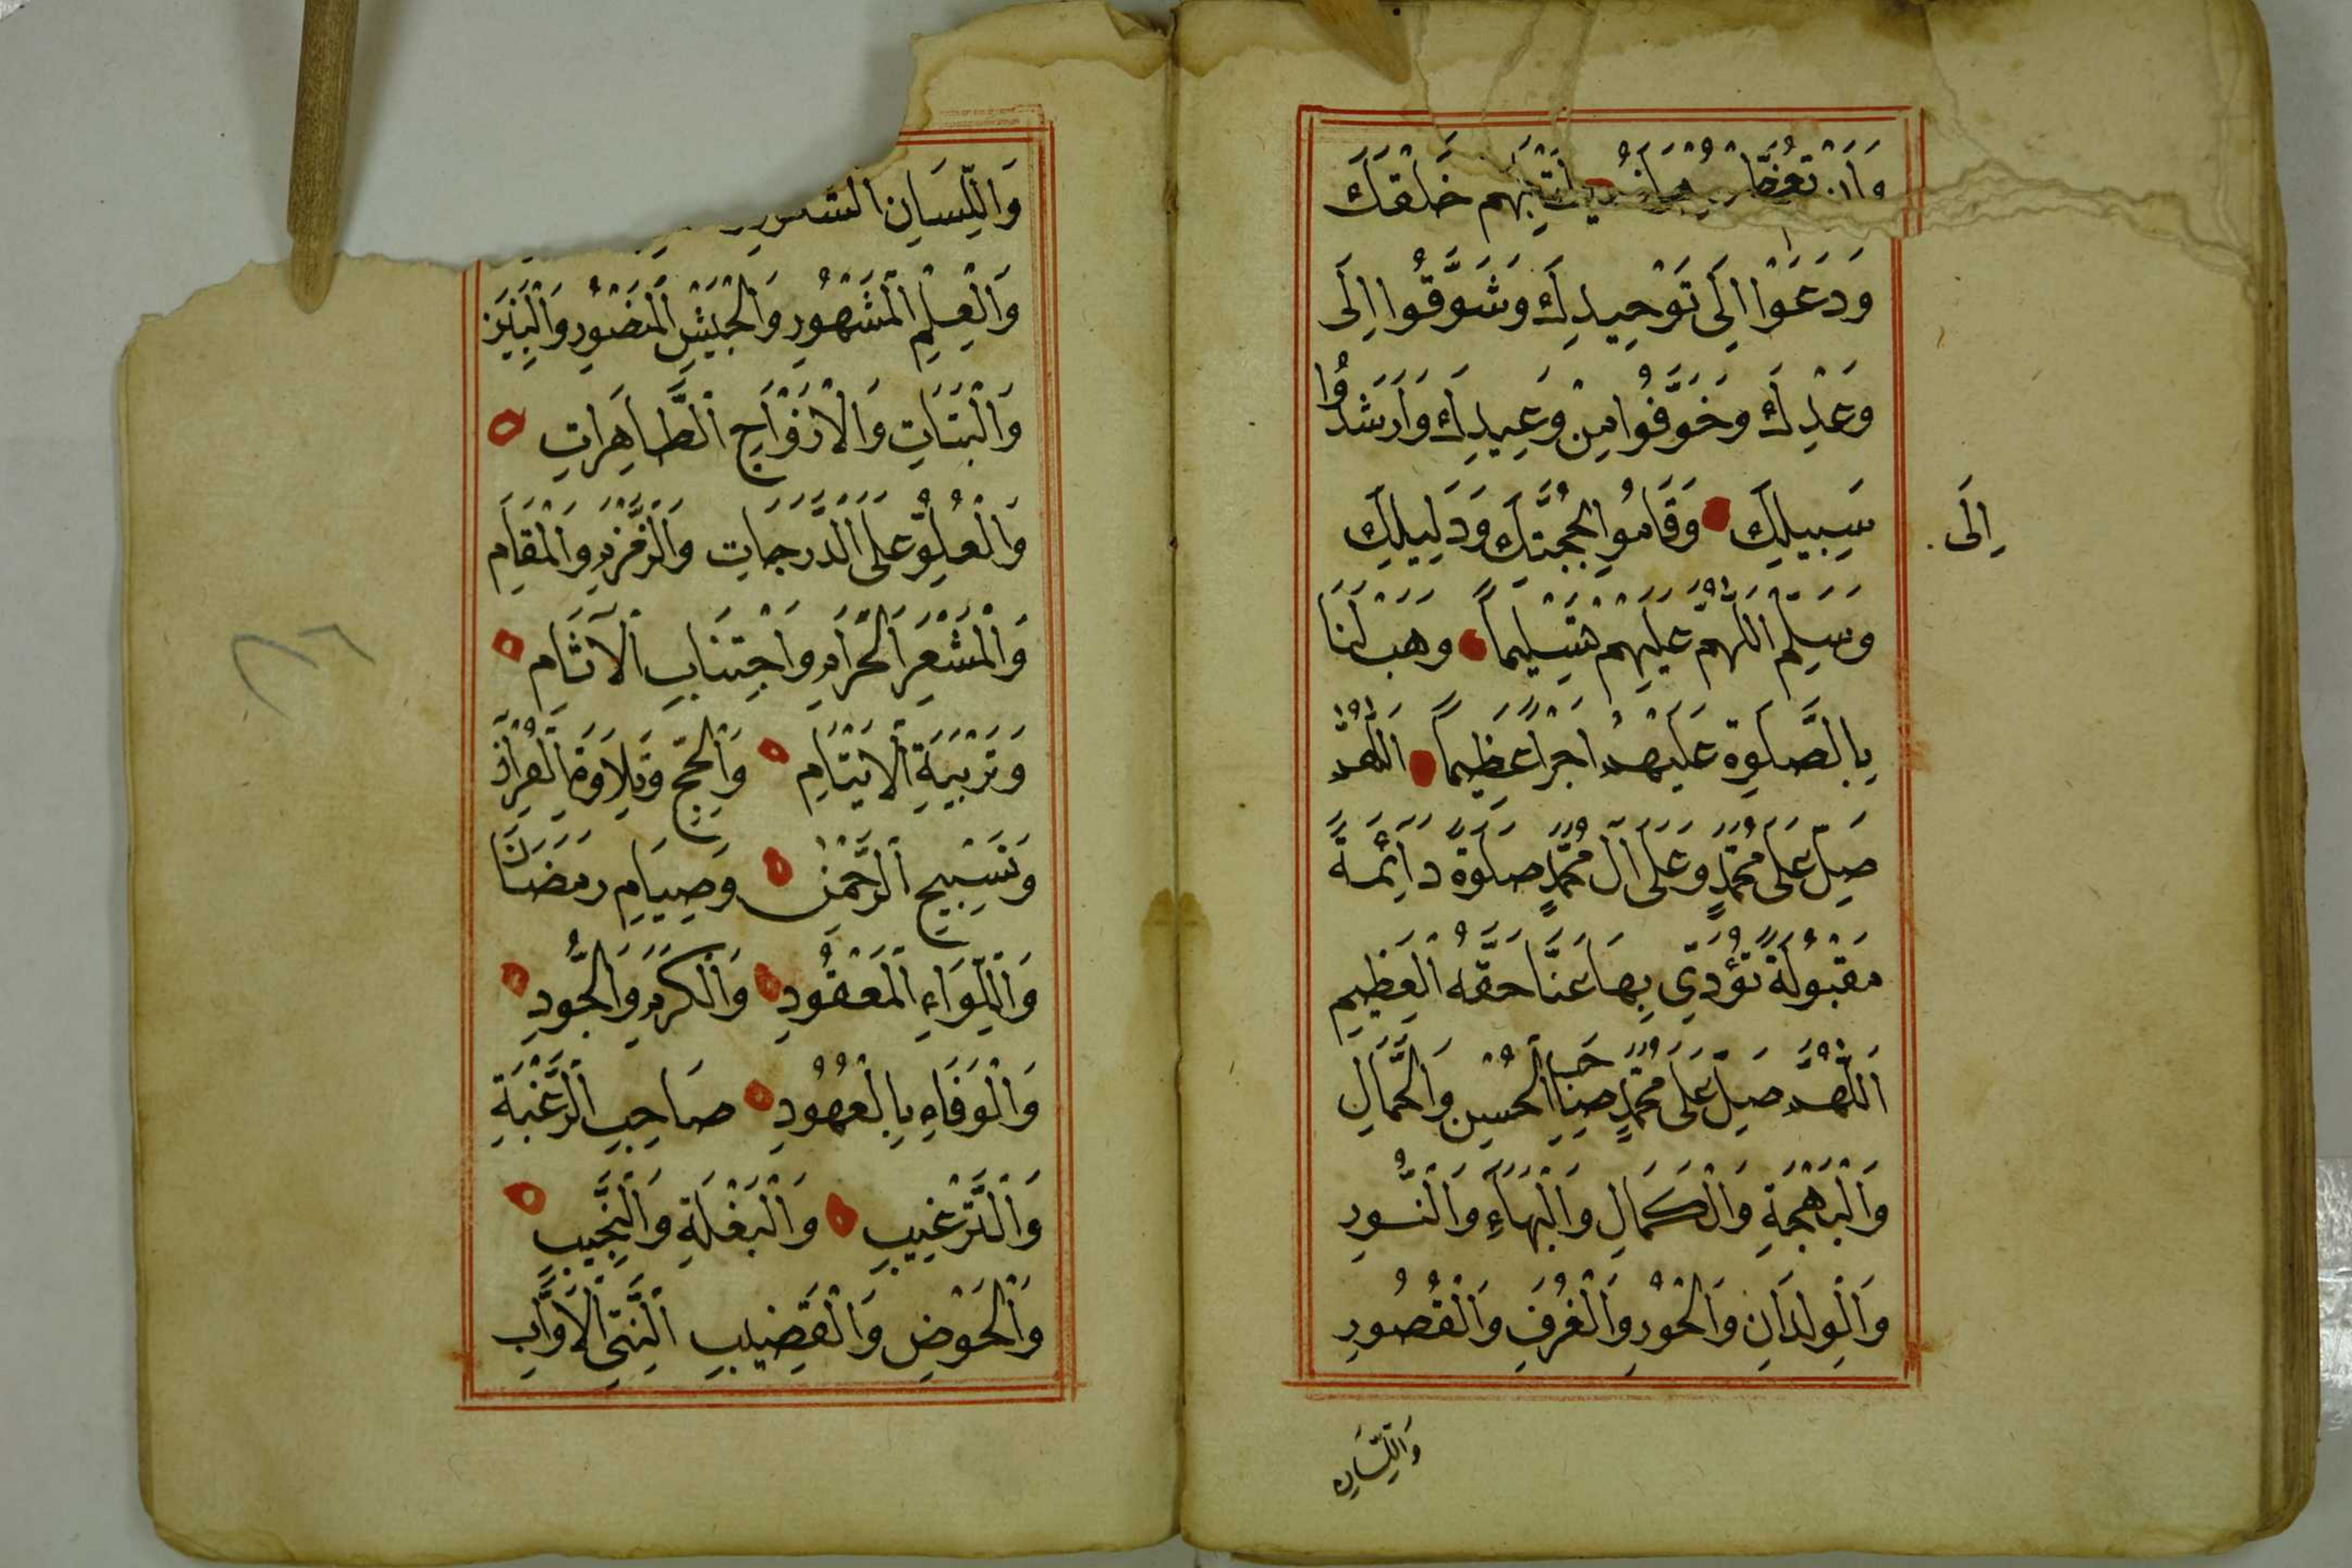 خَلْقَكَ
وَدَعَوْا اِلَى تَوْحِيدِكَ وَشَوَّقُوا اِلَى
وَعْدِكَ وَخَوَّفُوا مِنْ وَعِيدِكَ وَاَرْشَدُوا
سَبِيلِكَ وَقَامُوا بِحُجَّتِكَ وَدَلِيلِكَ
اِلَى
وَسَلِّمِ اللّٰهُمَّ عَلَيْهِمْ تَسْلِيماً وَهَبْ لَنَا
بِالصَّلوةِ عَلَيْهِمْ اَجْراً عَظِيماً اَللّٰهُمَّ
صَلِّ عَلَى مُحَمَّدٍ وَعَلَى آلِ مُحَمَّدٍ صَلوةً دَائِمَةً
مَقْبُولَةً تُؤَدِّي بِهَا عَنَّا حَقَّهُ الْعَظِيمِ
اَللّٰهُمَّ صَلِّ عَلَى مُحَمَّدٍ صَاحِبِ الْحُسْنِ وَالْجَمَالِ
وَالْبَهْجَةِ وَالْكَمَالِ وَالْبَهَاءِ وَالنُّورِ
وَالْوِلْدَانِ وَالْحُورِ وَالْغُرَفِ وَالْقُصُورِ
وَاللِّسَانِ
وَاللِّسَانِ الشَّكُورِ
وَالْعِلْمِ الْمَشْهُورِ وَالْجَيْشِ الْمَنْصُورِ وَالْبَنِينَ
وَالْبَنَاتِ وَالْاَزْوَاجِ الطَّاهِرَاتِ
وَالْعُلُوِّ عَلَى الدَّرَجَاتِ وَالزَّمْزَمِ وَالْمَقَامِ
وَالْمَشْعَرِ الْحَرَامِ وَاجْتِنَابِ الْآثَامِ
وَتَرْبِيَةِ الْاَيْتَامِ وَالْحَجِّ وَتِلَاوَةِ الْقُرْآنِ
وَتَسْبِيحِ الرَّحْمٰنِ وَصِيَامِ رَمَضَانَ
وَاللِّوَاءِ الْمَعْقُودِ وَالْكَرَمِ وَالْجُودِ
وَالْوَفَاءِ بِالْعُهُودِ صَاحِبِ الرَّغْبَةِ
وَالتَّرْغِيبِ وَالْبَغْلَةِ وَالنَّجِيبِ
وَالْحَوْضِ وَالْقَضِيبِ النَّبِيِّ الْاَوَّابِ